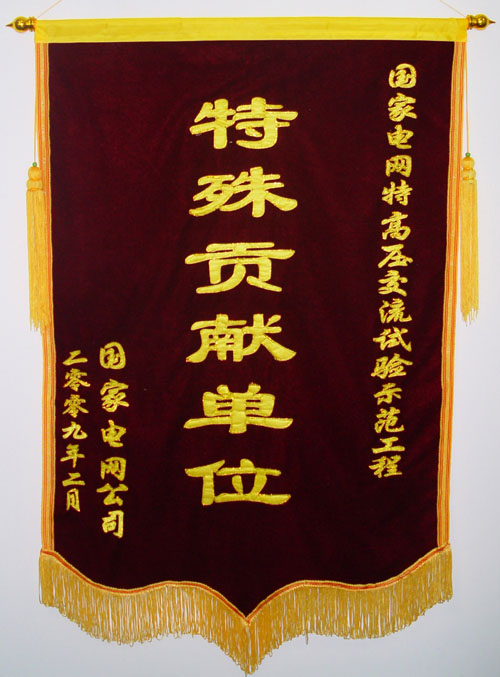 国家电网特高压交流试验示范工程
特殊贡献单位
国家电网公司
二零零九年二月